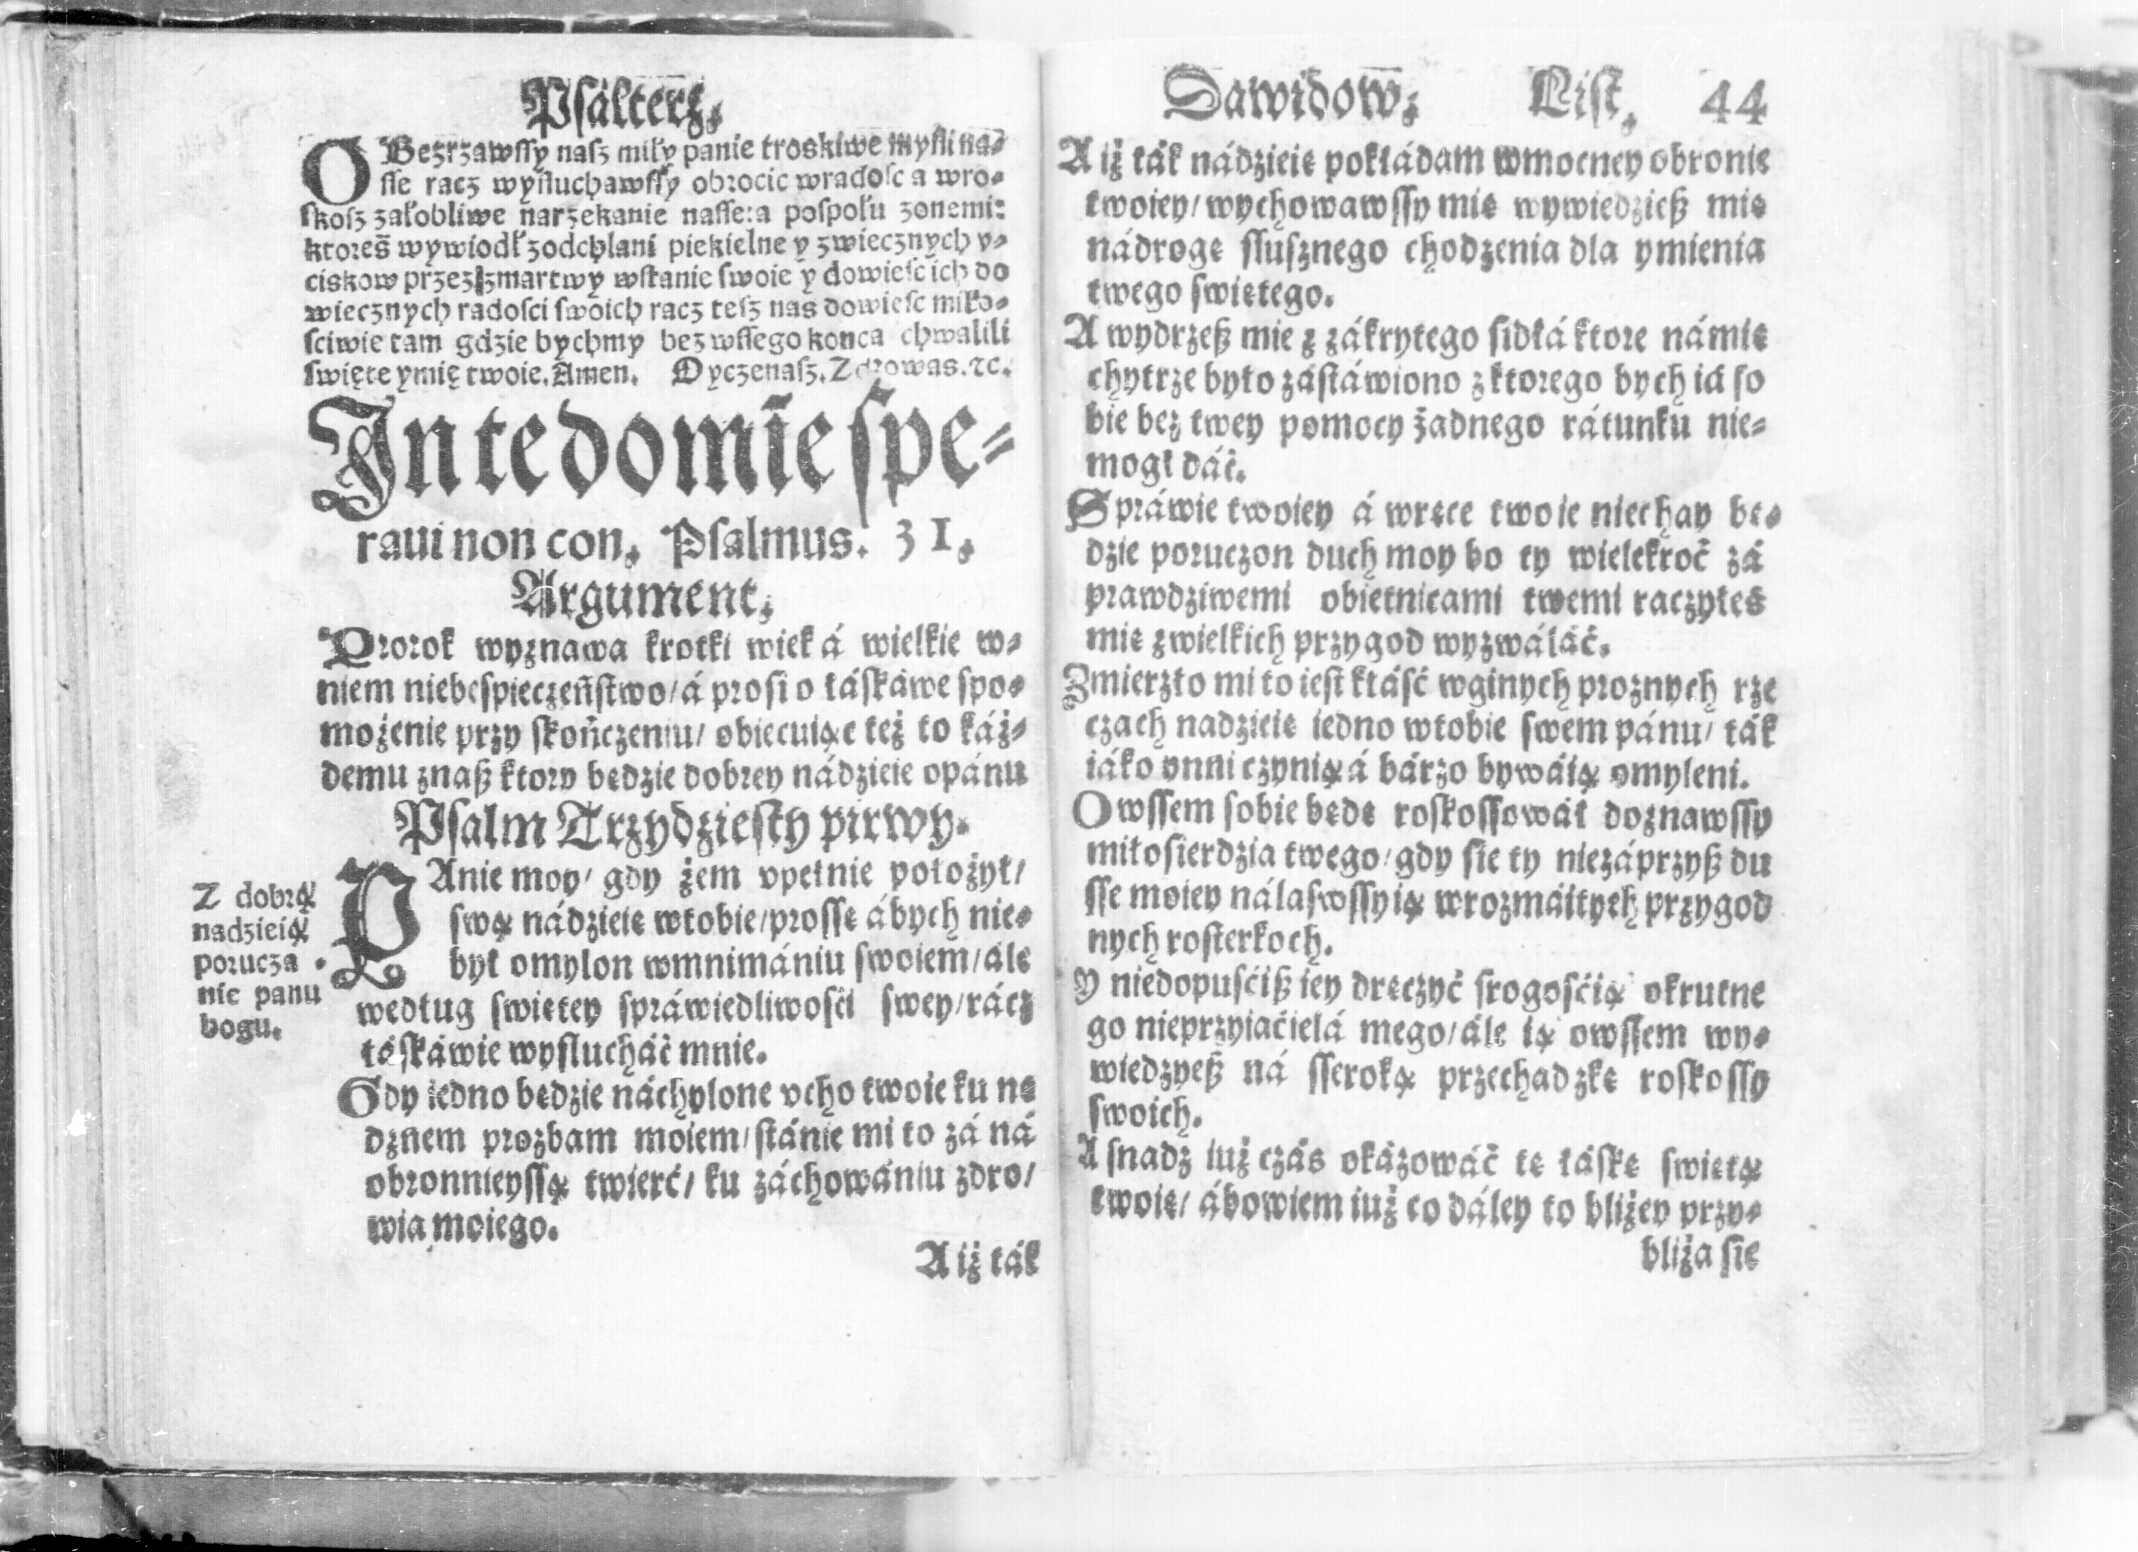 Psálterz.
OBezrzawssy nasz miły panie troskliwe mysli na⸗
sse racz wysluchawssy obrocic wradosc a wro⸗
skosz załobliwe narzekanie nasse:a pospołu zonemi:
ktores wywiodł zodchlani piekielne y zwiecznych v⸗
ciskow przez zmartwy wstanie swoie y dowiesc ich do
wiecznych radosci swoich racz tesz nas dowiesc miło⸗
sciwie tam gdzie bychmy bez wssego konca chwalili
swięte ymię twoie. Amen. Oyczenasz. Zdrowas. ⁊c.
In te domīe spe⸗
raui non con. Psalmus. 31.
Argument.
Prorok wyznawa krotki wiek á wielkie w⸗
niem niebespieczeństwo/ á prosi o łáskáwe spo⸗
możenie przy skończeniu/ obiecuiąc też to káż⸗
demu znaß ktory będzie dobrey nádzieie opánu
Psalm Trzydziesty pirwy.
PAnie moy/ gdy żem vpełnie położył/
swą nádzieię wtobie/ prossę ábych nie⸗
był omylon wmnimániu swoiem/ ále
według swiętey spráwiedliwości swey/ rácz
łáskáwie wysłucháć mnie.
Z dobrą
nadzieią
porucza
nie panu
bogu.
Gdy iedno będzie náchylone vcho twoie ku nę
dznem prozbam moiem/ stánie mi to zá ná
obronnieyssą twierć/ ku záchowániu zdro/
wia moiego.
A iż ták
Dawidow. List. 44
A iż ták nádzieię pokłádam wmocney obronie
twoiey/ wychowawssy mię wywiedzieß mię
nádrogę slusznego chodzenia dla ymienia
twego swiętego.
A wydrzeß mie z zákrytego sidłá ktore námię
chytrze było zástáwiono z ktorego bych ia so
bie bez twey pomocy żadnego rátunku nie⸗
mogł dáć.
Spráwie twoiey á wręce twoie niechay bę⸗
dzie poruczon duch moy bo ty wielekroć zá
prawdziwemi obietnicami twemi raczyłeś
mię zwielkich przygod wyzwáláć.
Zmierzło mi to iest kłáść wginych proznych rze
czach nadzieię iedno wtobie swem pánu/ ták
iáko ynni czynią á bárzo bywáią omyleni.
Owssem sobie będę roskossowáł doznawssy
miłosierdzia twego/ gdy się ty niezáprzyß du
sse moiey nálaswssy ią wrozmáitych przygod
nych rosterkoch.
Y niedopuściß iey dręczyć srogością okrutne
go nieprzyiaćielá mego/ ále ią owssem wy⸗
wiedzyeß ná sseroką przechadzkę roskossy
swoich.
A snadz iuż czás okázowáć tę łáskę swiętą
twoię/ ábowiem iuż co dáley to bliżey przy⸗
bliża się